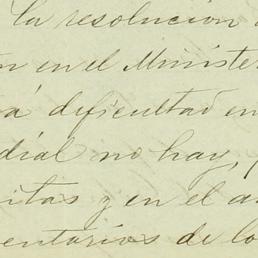 la resolucion
n en el Ministe
á dificultad en
dial no hay,
itas y en el a
entarios de lo